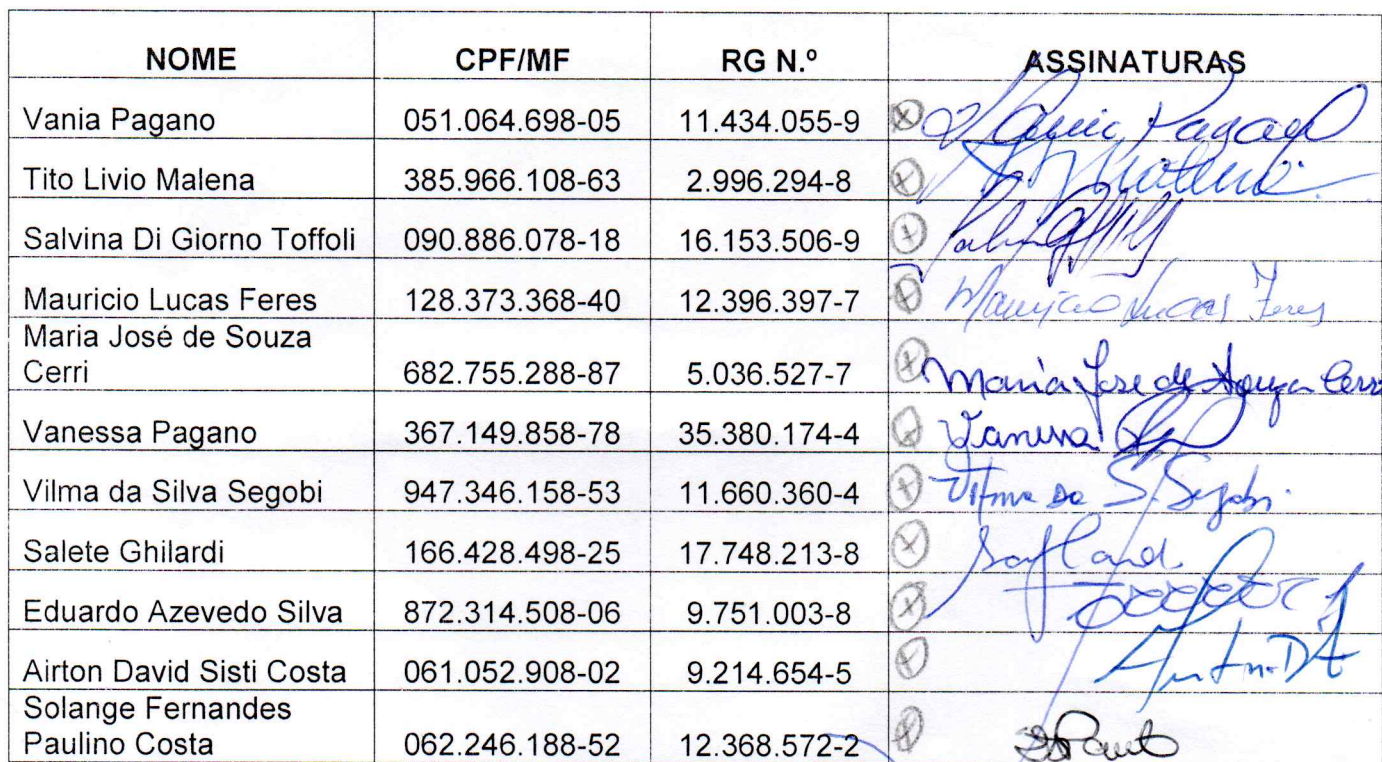 NOME CPF/MF RG N.º ASSINATURAS
Vania Pagano 051.064.698-05 11.434.055-9 Vania Pagano
Tito Livio Malena 385.966.108-63 2.996.294-8 Malena
Salvina Di Giorno Toffoli 090.886.078-18 16.153.506-9
Mauricio Lucas Feres 128.373.368-40 12.396.397-7 Mauricio Lucas Feres
Maria José de Souza
Cerri 682.755.288-87 5.036.527-7 Maria Jose de Souza Cerri
Vanessa Pagano 367.149.858-78 35.380.174-4 Vanessa
Vilma da Silva Segobi 947.346.158-53 11.660.360-4 Vilma da S. Segobi
Salete Ghilardi 166.428.498-25 17.748.213-8
Eduardo Azevedo Silva 872.314.508-06 9.751.003-8
Airton David Sisti Costa 061.052.908-02 9.214.654-5
Solange Fernandes
Paulino Costa 062.246.188-52 12.368.572-2